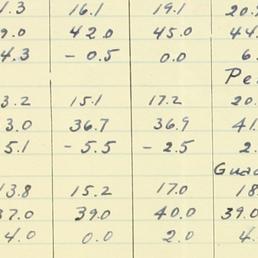 1.3 16.1 19.1 20.
9.0 42.0 45.0 44.
4.3 - 0.5 0.0 6.
Pe
3.2 15.1 17.2 20.
3.0 36.7 36.9 41.
5.1 - 5.5 - 2.5 2.
Guad
13.8 15.2 17.0 18.
37.0 39.0 40.0 39.0
4.0 0.0 2.0 4.